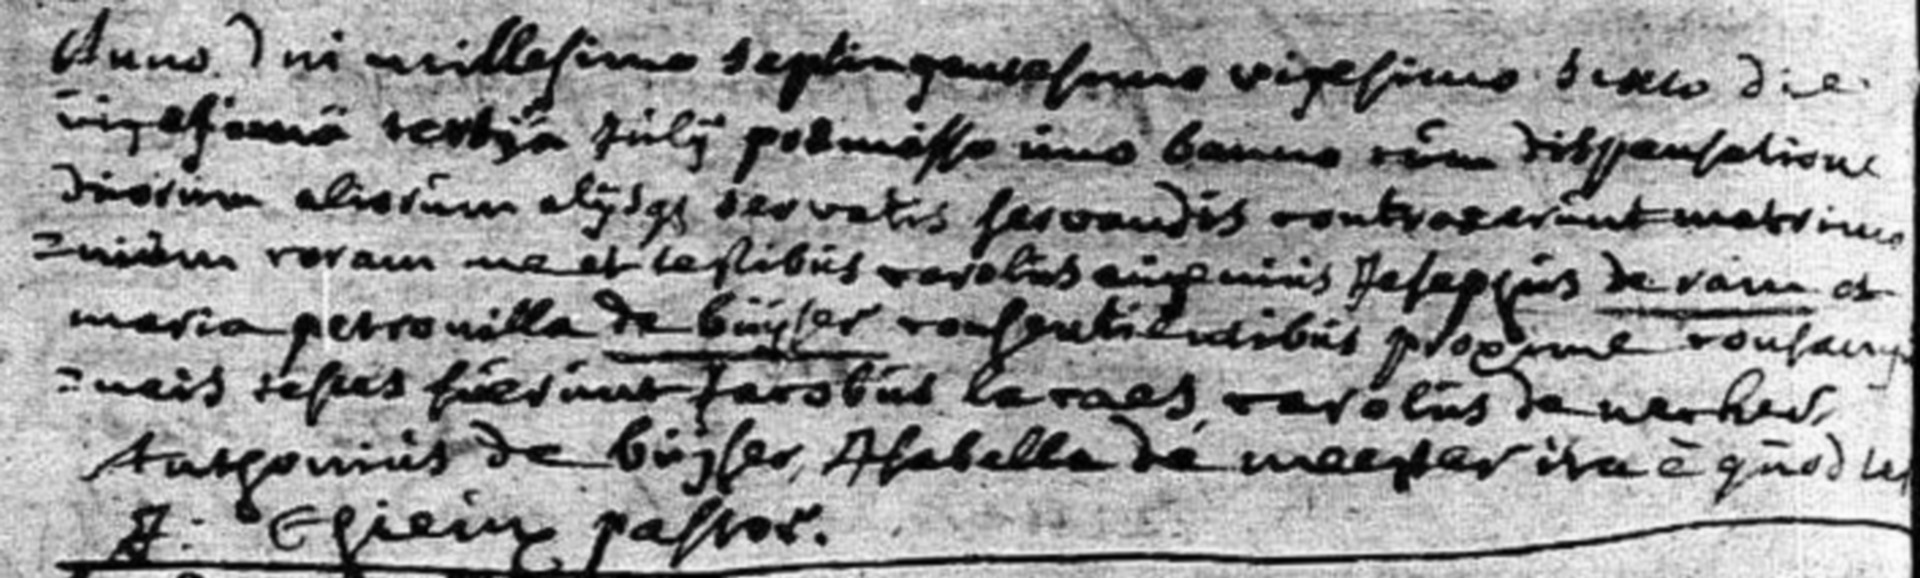 Anno Dni millesimo septingentesimo vigesimo sexto die
vigesima tertia Julij praemisso uno banno cum dispensatione
duorum aliorum alijsq servatis servandis contraxerunt matrimo
=nium coram me et testibus carolus eugenius Josephus de ram et
maria petronilla de büyser consentientibus proxime consangui
=neis testes fuerunt Jacobus lacaes, carolus de necker,
Anthonius de büyser, Isabella de meester ita e quod tes
J. pastor.